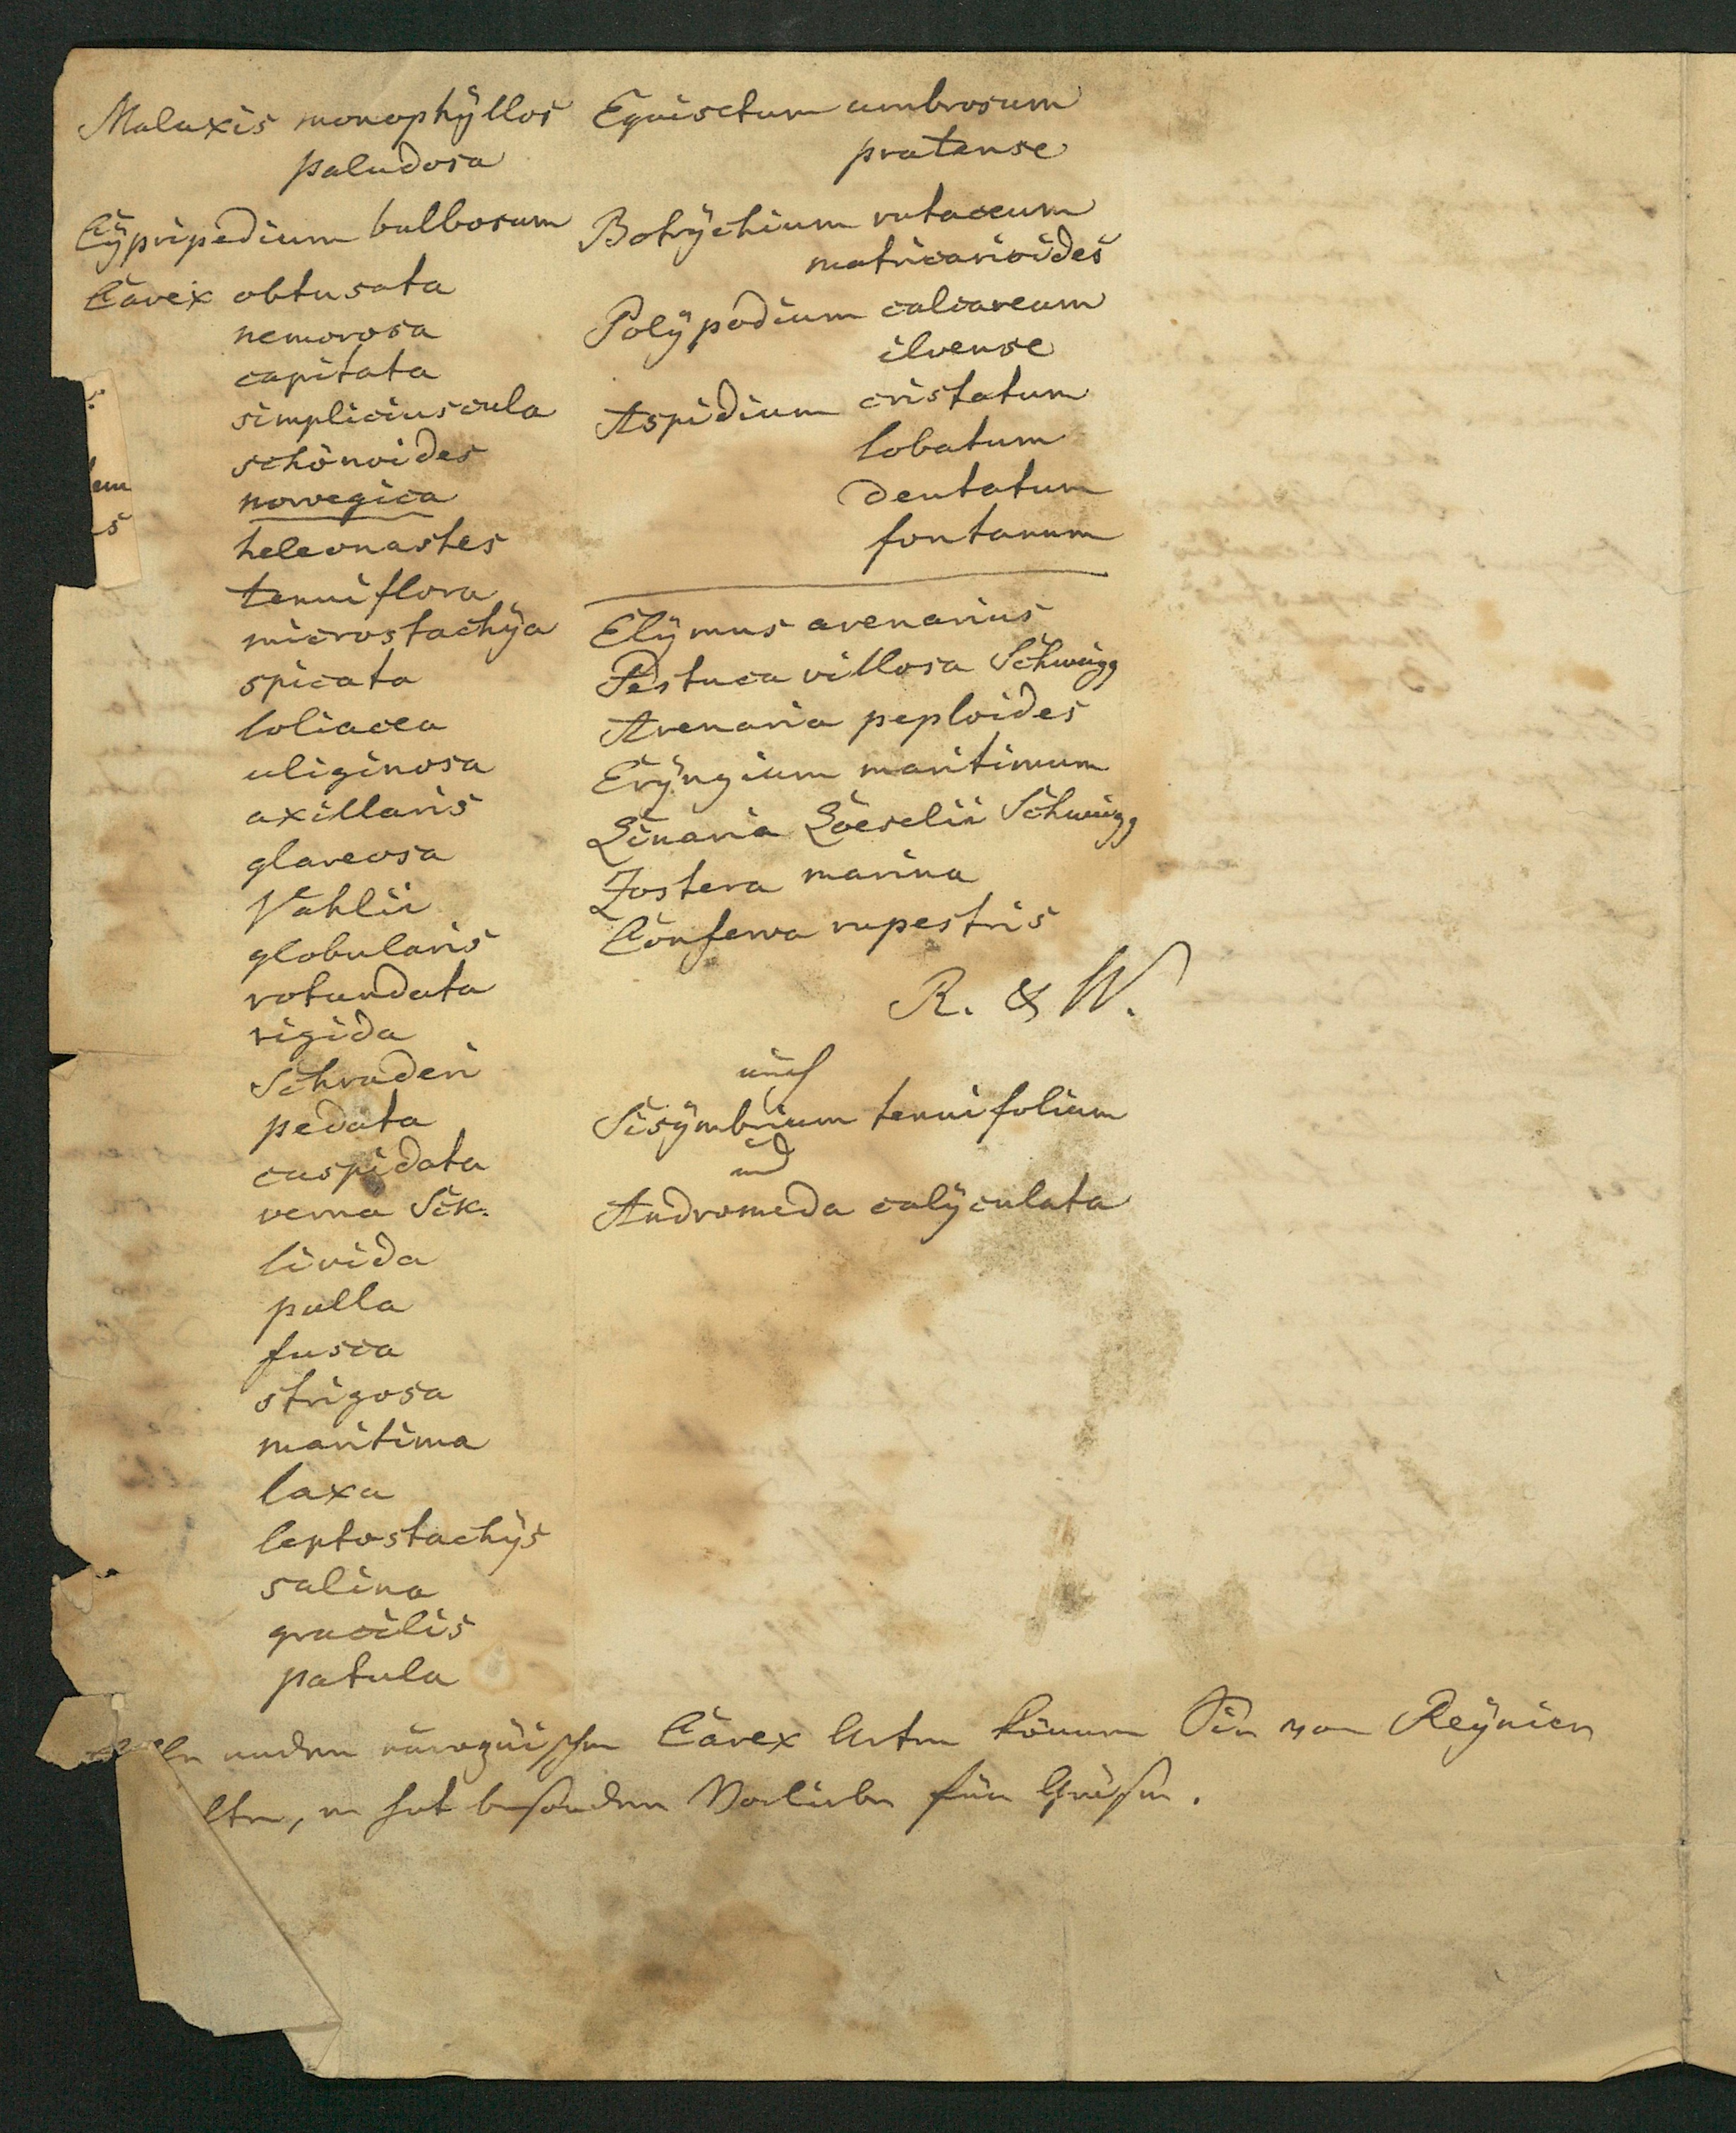 Malaxis monophÿllos
paludosa
Cÿpripedium bulbosum
Carex obtusata
nemorosa
capitata
simpliciuscula
schönoides
norvegica
heleonastes
tenuiflora
microstachÿa
spicata
loliacea
uliginosa
axillaris
glareosa
Vahlii
globularis
rotundata
rigida
Schraderi
pedata
cuspidata
verna Sck.
livida
pulla
fusca
strigosa
maritima
laxa
leptostachÿs
salina
gracilis
patula
Equisetum umbrosum
pratense
Botrÿchium rutaceum
matricarioides
Polÿpodium calcareum
ilvense
Aspidium cristatum
lobatum
dentatum
fontanum
Elÿmus arenarius
Festuca villosa Schweigg
Arenaria peploides
Erÿngium maritimum
Linaria Loeselii Schweigg
Zostera marina
Conferva rupestris
R. & W.
auch
Sisÿmbrium tenuifolium
und
Andromeda calÿculata
andern norwegischen Carex Arten können Sie von Reÿnier
lten, er hat besondere Vorliebe für Gräser.